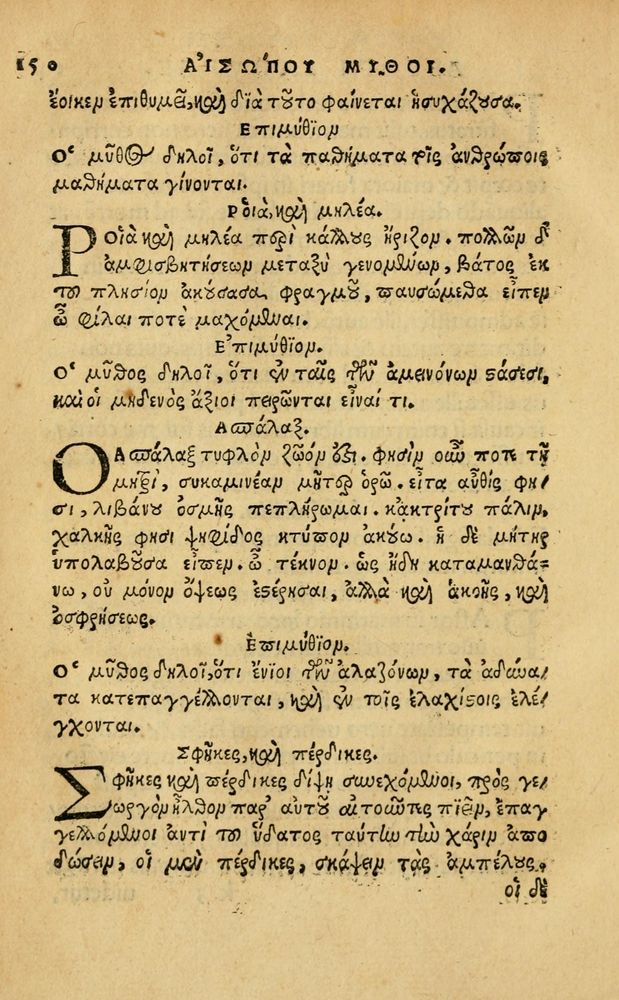 150 ΑἸΣΩΠΟΥ ΜΥΘΟΙ.
ἔοικεν ἐπιθυμεῖν, καὶ διὰ τοῦτο φαίνεται ἡσυχάζουσα.
Ἐπιμύθιον
Ὁ μῦθος δηλοῖ, ὅτι τὰ παθήματα τοῖς ἀνθρώποις
μαθήματα γίνονται.
Ῥοιὰ, καὶ μηλέα.
Ῥοιὰ καὶ μηλέα περὶ κάλλους ἤριζον. πολλῶν δ'
ἀμφισβητήσεων μεταξὺ γενομένων, βάτος ἐκ
τοῦ πλησίον ἀκούσασα φραγμοῦ, παυσώμεθα εἶπεν
ὦ φίλαι ποτὲ μαχόμεναι.
Ἐπιμύθιον.
Ὁ μῦθος δηλοῖ, ὅτι ἐν ταῖς τῶν ἀμεινόνων στάσεσι,
καὶ οἱ μηδενὸς ἄξιοι πειρῶνται εἶναί τι.
Ἀσπάλαξ.
Ὁ Ἀσπάλαξ τυφλὸν ζῶόν ἐστι. φησὶν οὖν ποτε τῇ
μητρὶ, συκαμινέαν μῆτερ ὁρῶ. εἶτα αὖθίς φη-
σι, λιβάνου ὀσμῆς πεπλήρωμαι. κἀκ τρίτου πάλιν,
χαλκῆς φησι ψηφίδος κτύπον ἀκούω. ἡ δὲ μήτηρ
ὑπολαβοῦσα εἶπεν. ὦ τέκνον. ὡς ἤδη καταμανθά-
νω, οὐ μόνον ὄψεως ἐστέρησαι, ἀλλὰ καὶ ἀκοῆς, καὶ
ὀσφρήσεως.
Ἐπιμύθιον.
Ὁ μῦθος δηλοῖ, ὅτι ἔνιοι τῶν ἀλαζόνων, τὰ ἀδύνα-
τα κατεπαγγέλλονται, καὶ ἐν τοῖς ἐλαχίστοις ἐλέ-
γχονται.
Σφῆκες, καὶ πέρδικες.
Σφῆκες καὶ πέρδικες δίψῃ συνεχόμενοι, πρὸς γε-
ωργὸν ἦλθον παρ' αὐτοῦ αἰτοῦντες πιεῖν, ἐπαγ
γελλόμενοι ἀντὶ τοῦ ὕδατος ταύτην τὴν χάριν ἀπο
δώσειν, οἱ μὲν πέρδικες, σκάψειν τὰς ἀμπέλους.
οἱ δὲ